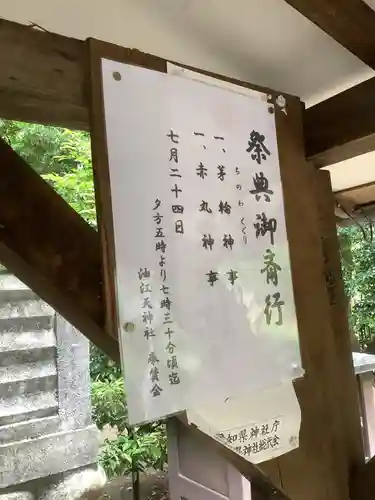 祭典御斎行
ちのわくぐり
一、茅輪神事
一、赤丸神事
七月二十四日
夕方五時より七時三十分頃迄
油江天神社 奉賛金
知県神社庁
県神社総代会